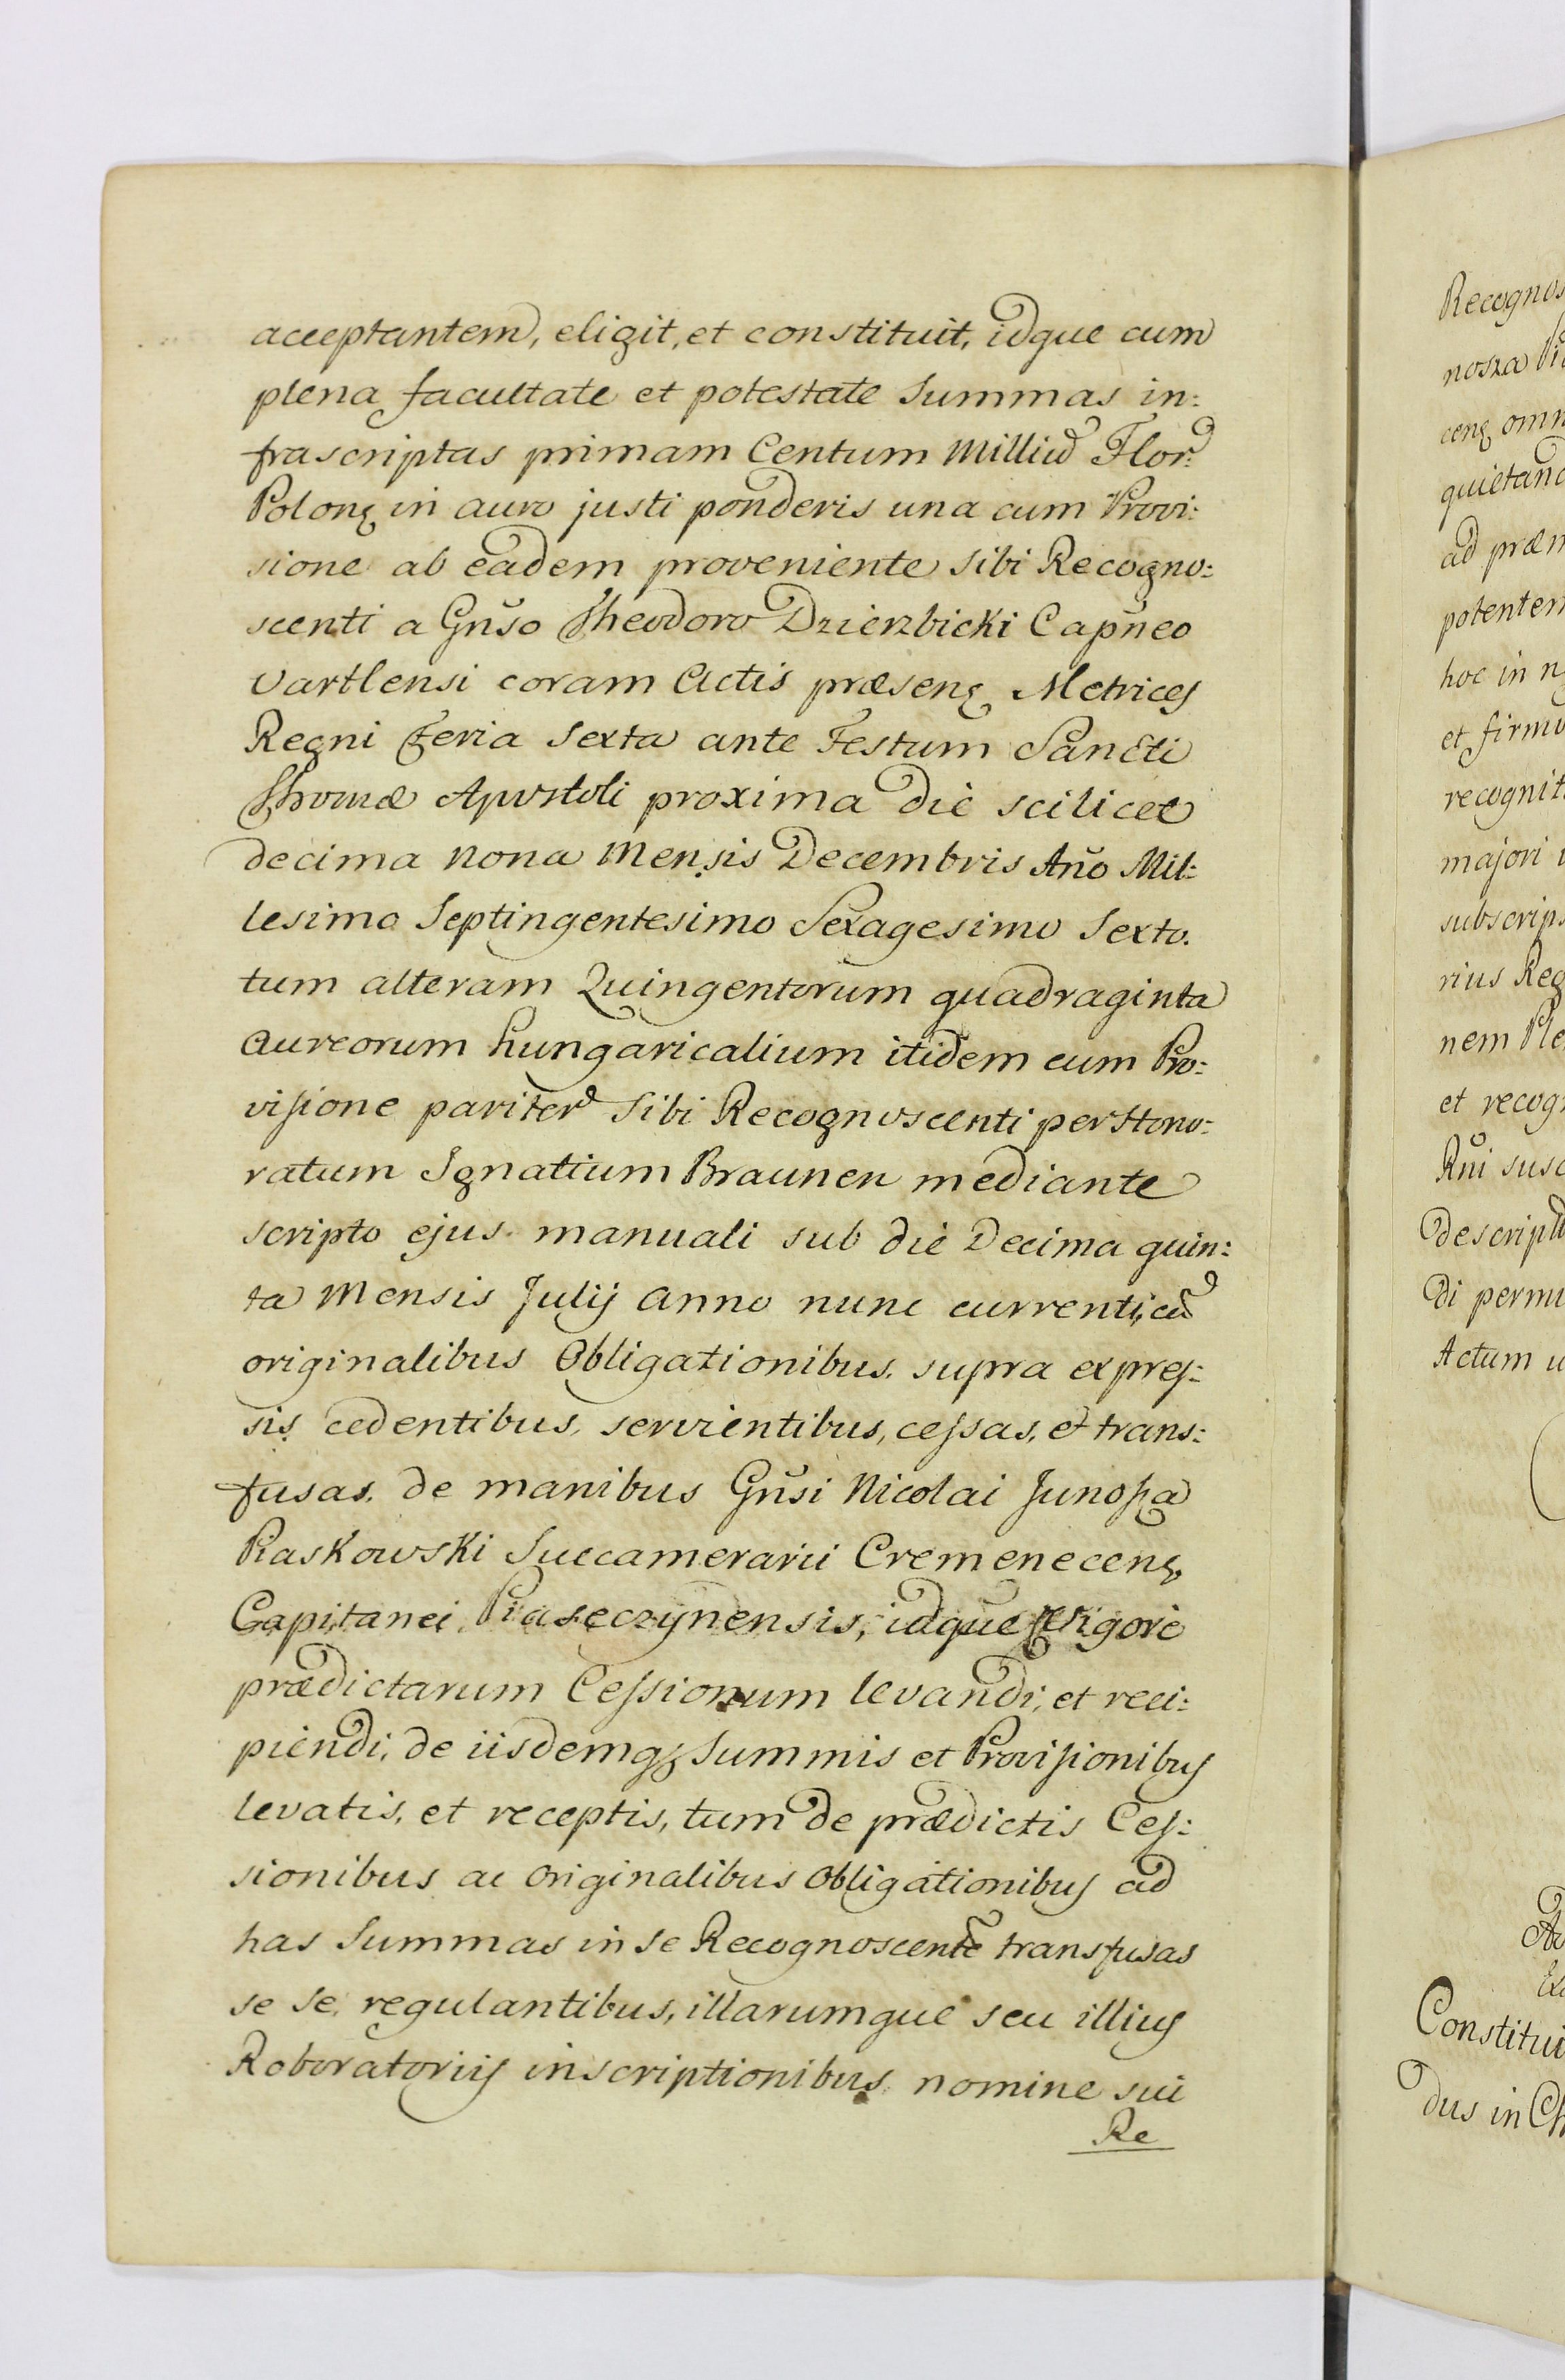 acceptantem, eligit, et constituit, idque cum
plena facultate et potestate Summas in:
frascriptas primam Centum Milliū Flor:
Polonę in auro justi ponderis una cum Provi:
sione ab eadem proveniente sibi Recogno:
scenti a Gn̄so Theodoro Dzierzbicki Capn̄eo
Vartlensi coram Actis præsenę Metrices
Regni Feria Sexta ante Festum Sancti
Thomæ Apostoli proxima die scilicet
decima nona Mensis Decembris An̄o Mil:
lesimo Septingentesimo Sexagesimo Sexto.
tum alteram Quingentorum quadraginta
Aureorum hungaricalium itidem cum Pro:
visione pariter Sibi Recognoscenti per Hono:
ratum Ignatium Braunen mediante
scripto ejus manuali sub die Decima quin:
ta Mensis Julij Anno nunc currenti, cū
originalibus Obligationibus supra expres:
sis cedentibus, servientibus, cessas, et trans:
fusas, de manibus Gn̄si Nicolai Junosza
Piaskowski Succamerarii Cremenecenę
Capitanei Piaseczynensis, idque Vigore
prædictarum Cessionum levandi, et reci:
piendi, de iisdemqȝ Summis et Provisionibus
levatis, et receptis, tum de prædictis Ces:
sionibus ac Originalibus Obligationibus ad
has Summas in se Recognoscentē transfusas
se se regulantibus, illarumque seu illius
Roboratorijs inscriptionibus nomine sui
Re
Recognos
nosza Pia
cenę omn
quietand
ad præm
potentem
hoc in n
et firmo
recognit
majori
subscrips
rius Reg
nem Ple
et recog
Rn̄i susc
descript
di permi
Actum u
Constitui
dus in Ch